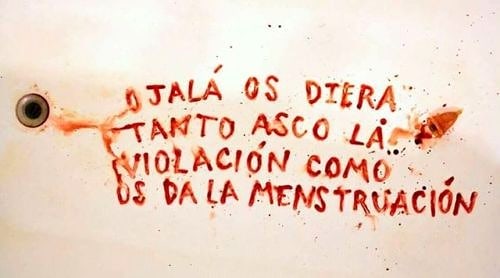 OJALÁ OS DIERA
TANTO ASCO LA
VIOLACIÓN COMO
OS DA LA MENSTRUACIÓN